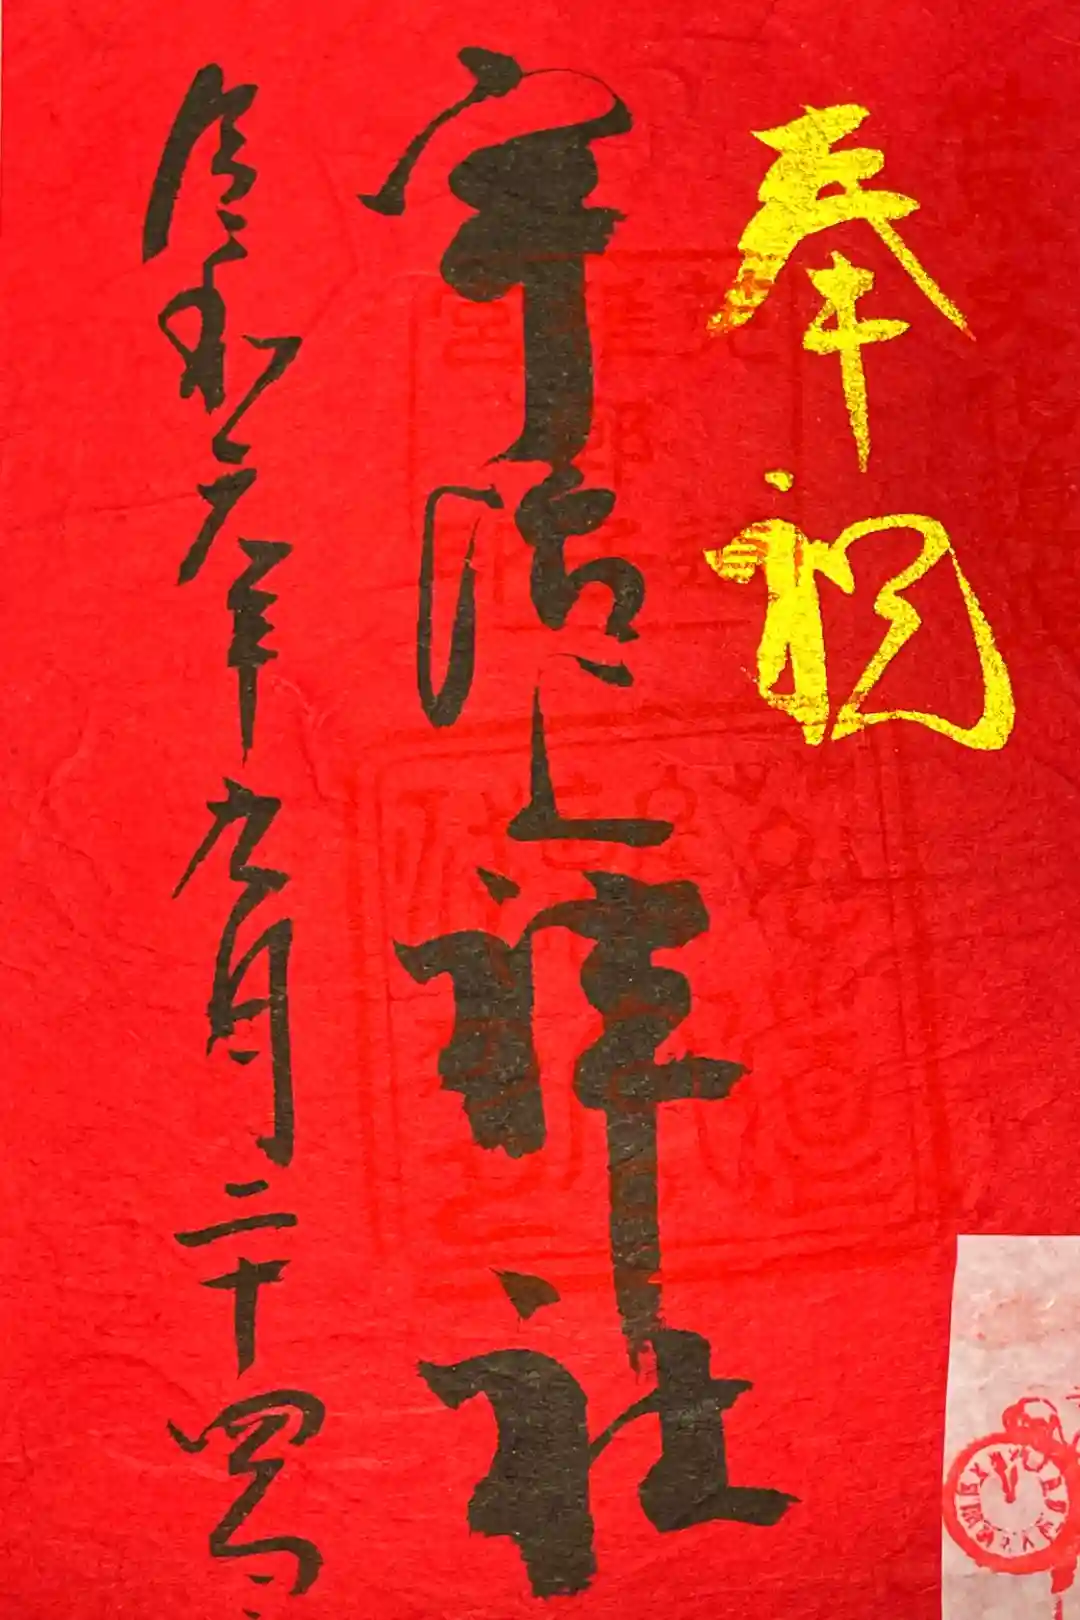 奉祝
宇治上神社
令和六年九月二十四日